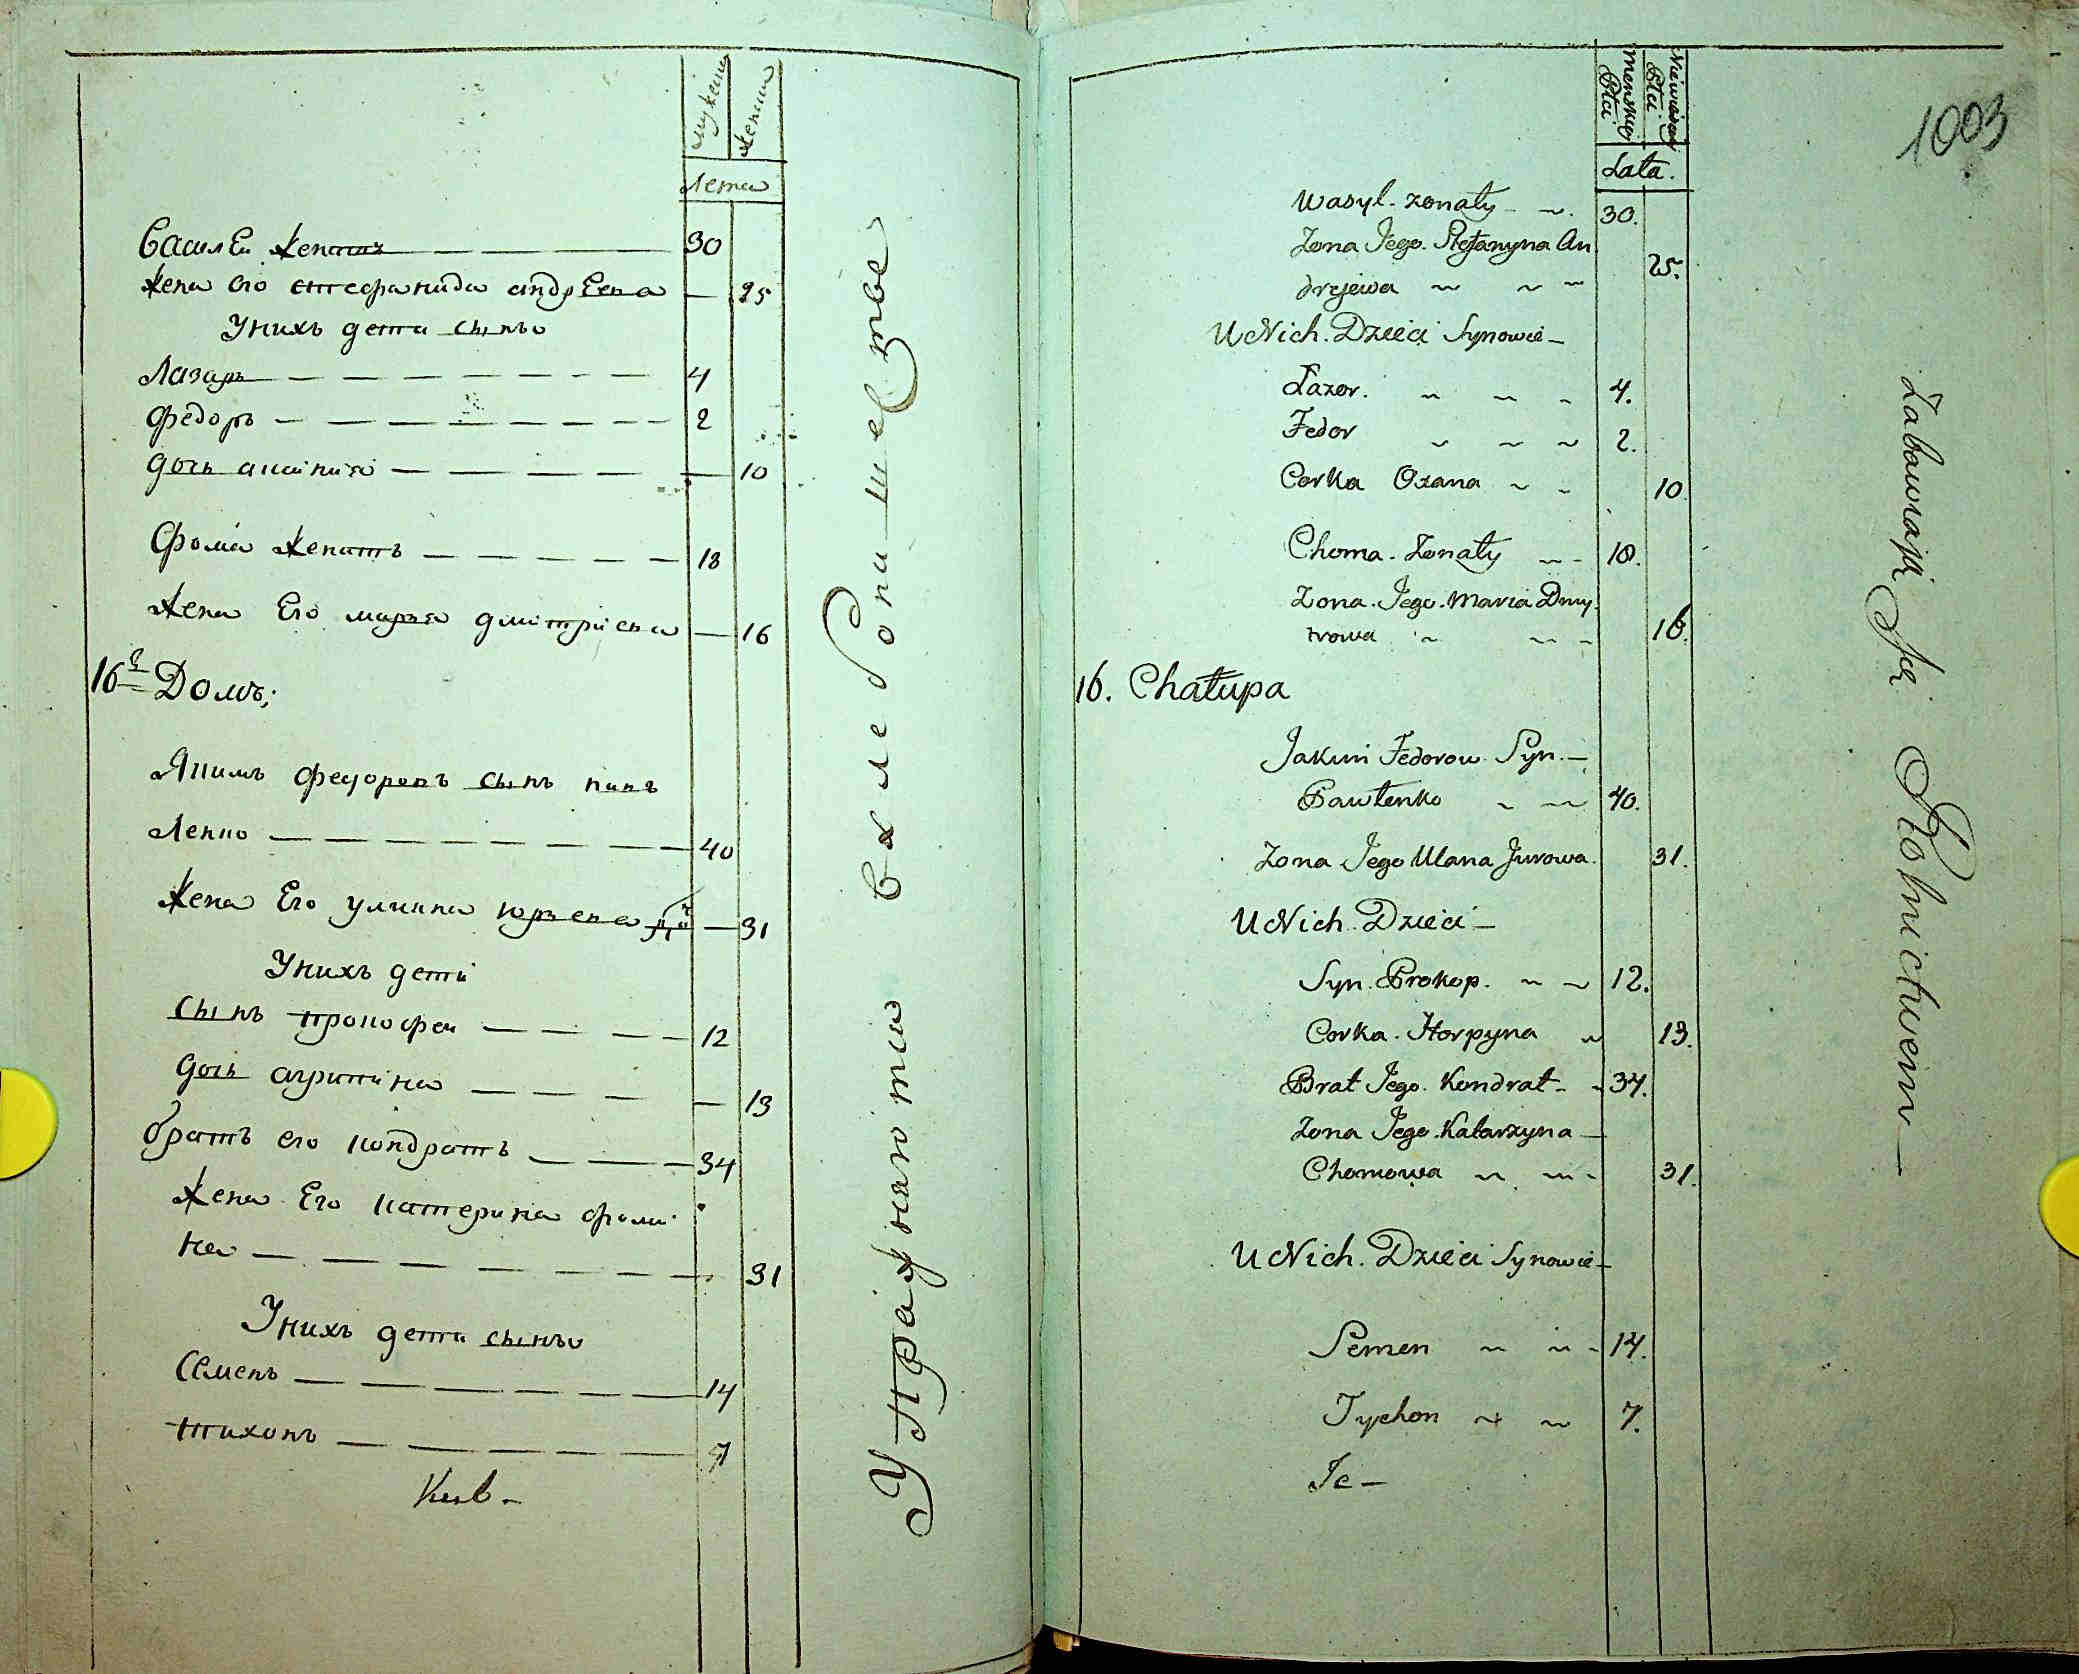 мужеска
женска
Лета
Василеи женатъ 30
жена его стефанида андреева 25
Унихъ дети сынъи
Лазаръ 4
федоръ 2
дочь аксиния 10
Фома женатъ 18
Жена Его марья дмитриева 16
16й Домъ;
Якимъ федоровъ сынъ павъ
Ленко 40
Жена Его улияна юрьева 31
Унихъ дети
сынъ прокофеи 12
дочь агрипина 13
братъ его кондратъ 34
Жена Его катерина фоми
на 31
Унихъ дети сынъи
Семенъ 14
тихонъ 7
Упражняютца вхлебопашетве
Męskiey Płci
Niewieściey Płci
Lata.
1003
Wasyl. żonaty 30.
Żona Jego. Stefanyna An
drejewa 25.
U Nich. Dzieci Synowie
Łazor. 4.
Fedor 2.
Corka Oxana 10
Choma. Żonaty 18.
Żona. Jego. Maria Dmy
trowa 16.
16. Chałupa
Jakim Fedorow Syn.
Pawlenko 40.
Żona Jego Ulana Jurowa. 31.
U Nich. Dzieci
Syn. Prokop. 12.
Corka. Horpyna 13.
Brat Jego. Kondrat 34.
Żona Jego. Katarzyna
Chomowa 31.
U Nich. Dzieci Synowie
Semen 14.
Tychon 7.
Je
Zabawiają Się Rolnictwem